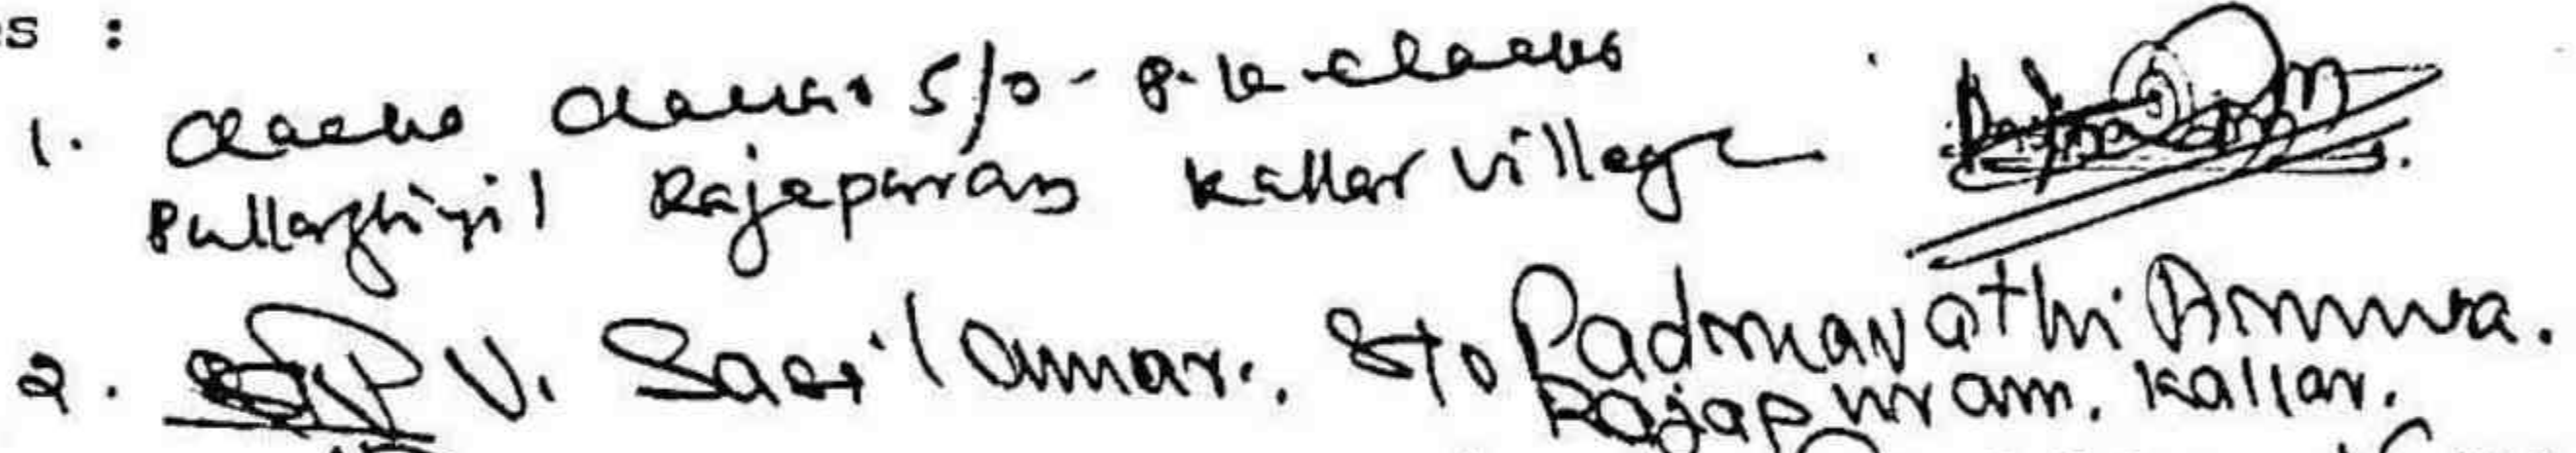 s :
1. Chacko Chacko S/O - P. K. Chacko
Pullazhiyil Rajapuram Kallar Village
2. V. Sasikumar. S/o Padmavathi Amma.
Rajapuram. Kallar.